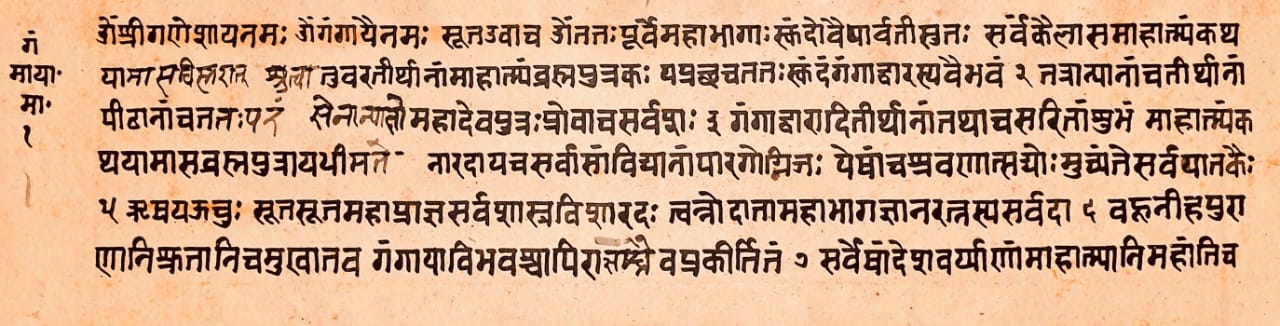 गं
माया॰
मा॰
१
ॐश्रीगणेशायनमः ॐगंगायैनमः सूतउवाच ॐततःपूर्वंमहाभागाःस्कंदोवैपार्वतीसुतः सर्वंकैलासमाहात्म्यंकथ
यामाससविस्तरात् श्रुत्वातुवरतीर्थानांमाहात्म्यंब्रह्मपुत्रकः पप्रछचततःस्कंदंगंगाद्वारस्यवैभवं २ तत्रात्पानांचतीर्थानां
पीठानांचततःपरं सेनान्यासौमहादेवपुत्रःप्रोवाचसर्वशः ३ गंगाद्वारादितीर्थानांतथाचसरितांशुभं माहात्म्यंक
थयामासब्रह्मपुत्रायधीमते नारदायचसर्वासांविद्यानांपारगोग्निजः येषांचश्रवणात्सद्योःमुच्यंतेसर्वपातकैः
५ ऋषयऊचुः सूतसूतमहाप्राज्ञसर्वशास्त्रविशारदः त्वन्नोदातामहाभागज्ञानरत्नस्यसर्वदा ६ वहूनीहपुरा
णानिश्रुतानिचमुखातव गंगायाविभवश्चापि वप्रकीर्तितं ७ सर्वेषांदेशवर्याणांमाहात्म्यानिमहांतिच